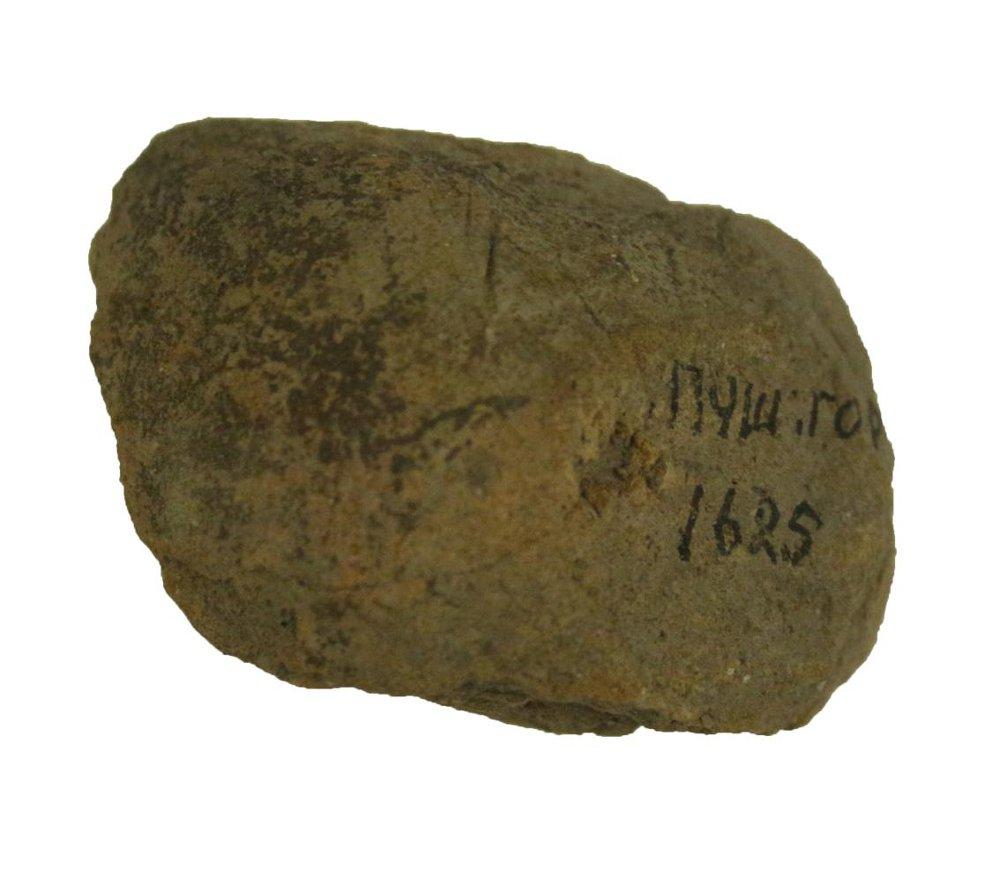 ПУШ.ГОР
1625